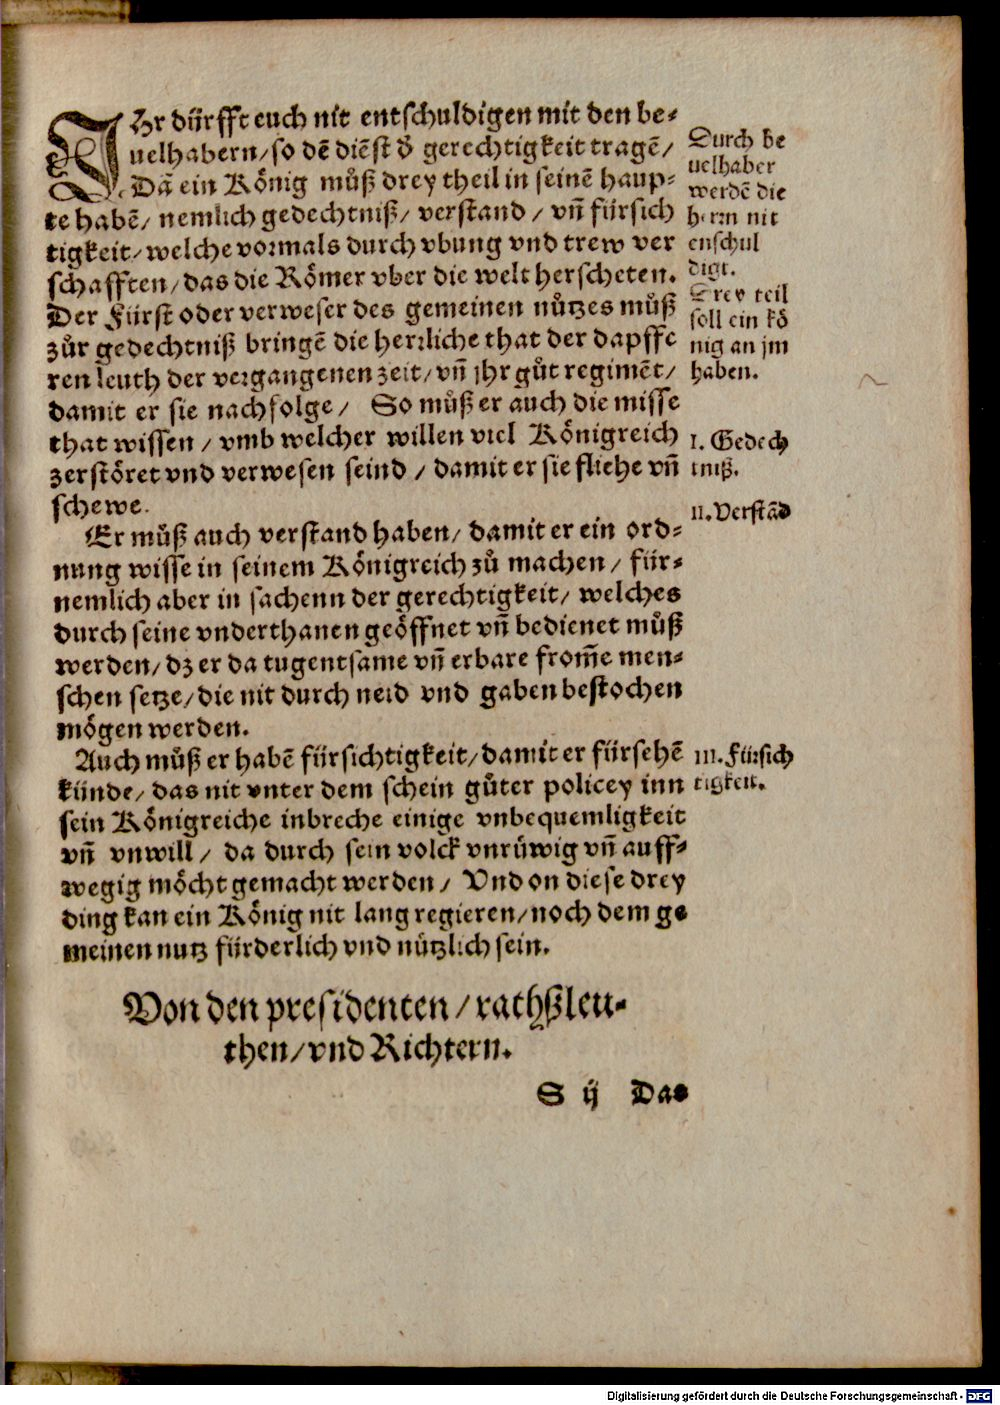 IHr dürfft euch nit entschuldigen mit den be⸗
uelhabern/ so dē diēst d̕ gerechtigkeit tragē/
Dā ein König můß drey theil in seinē haup⸗
te habē/ nemlich gedechtniß/ verstand / vn̄ fürsich
tigkeit/ welche vormals durch vbung vnd trew ver
schafften/ das die Römer vber die welt herscheten.
Der Fürst oder verweser des gemeinen nützes můß
zůr gedechtniß bringē die herrliche that der dapffe
ren leuth der vergangenen zeit/ vn̄ jhr gůt regimēt/
damit er sie nachfolge/ So můß er auch die misse
that wissen / vmb welcher willen viel Königreich
zerstöret vnd verwesen seind / damit er sie fliehe vn̄
schewe.
Er můß auch verstand haben/ damit er ein ord⸗
nung wisse in seinem Königreich zů machen/ für⸗
nemlich aber in sachenn der gerechtigkeit/ welches
durch seine vnderthanen geöffnet vn̄ bedienet můß
werden/ dz er da tugentsame vn̄ erbare from̄e men⸗
schen setze/ die nit durch neid vnd gaben bestochen
mögen werden.
Auch můß er habē fürsichtigkeit/ damit er fürsehē
künde/ das nit vnter dem schein gůter policey inn
sein Königreiche inbreche einige vnbequemligkeit
vn̄ vnwill / da durch sein volck vnrüwig vn̄ auff⸗
wegig möcht gemacht werden/ Vnd on diese drey
ding kan ein König nit lang regieren/ noch dem ge
meinen nutz fürderlich vnd nützlich sein.
Durch be
uelhaber
werdē die
herrn nit
enschul
digt.
Drey teil
soll ein kö
nig an jm
haben.
I. Gedech
tniß.
II. Verstād
III. Fürsich
tigkeit.
Von den presidenten / rathßleu⸗
then/ vnd Richtern.
S ij Das
Digitalisierung gefördert durch die Deutsche Forschungsgemeinschaft - DFG